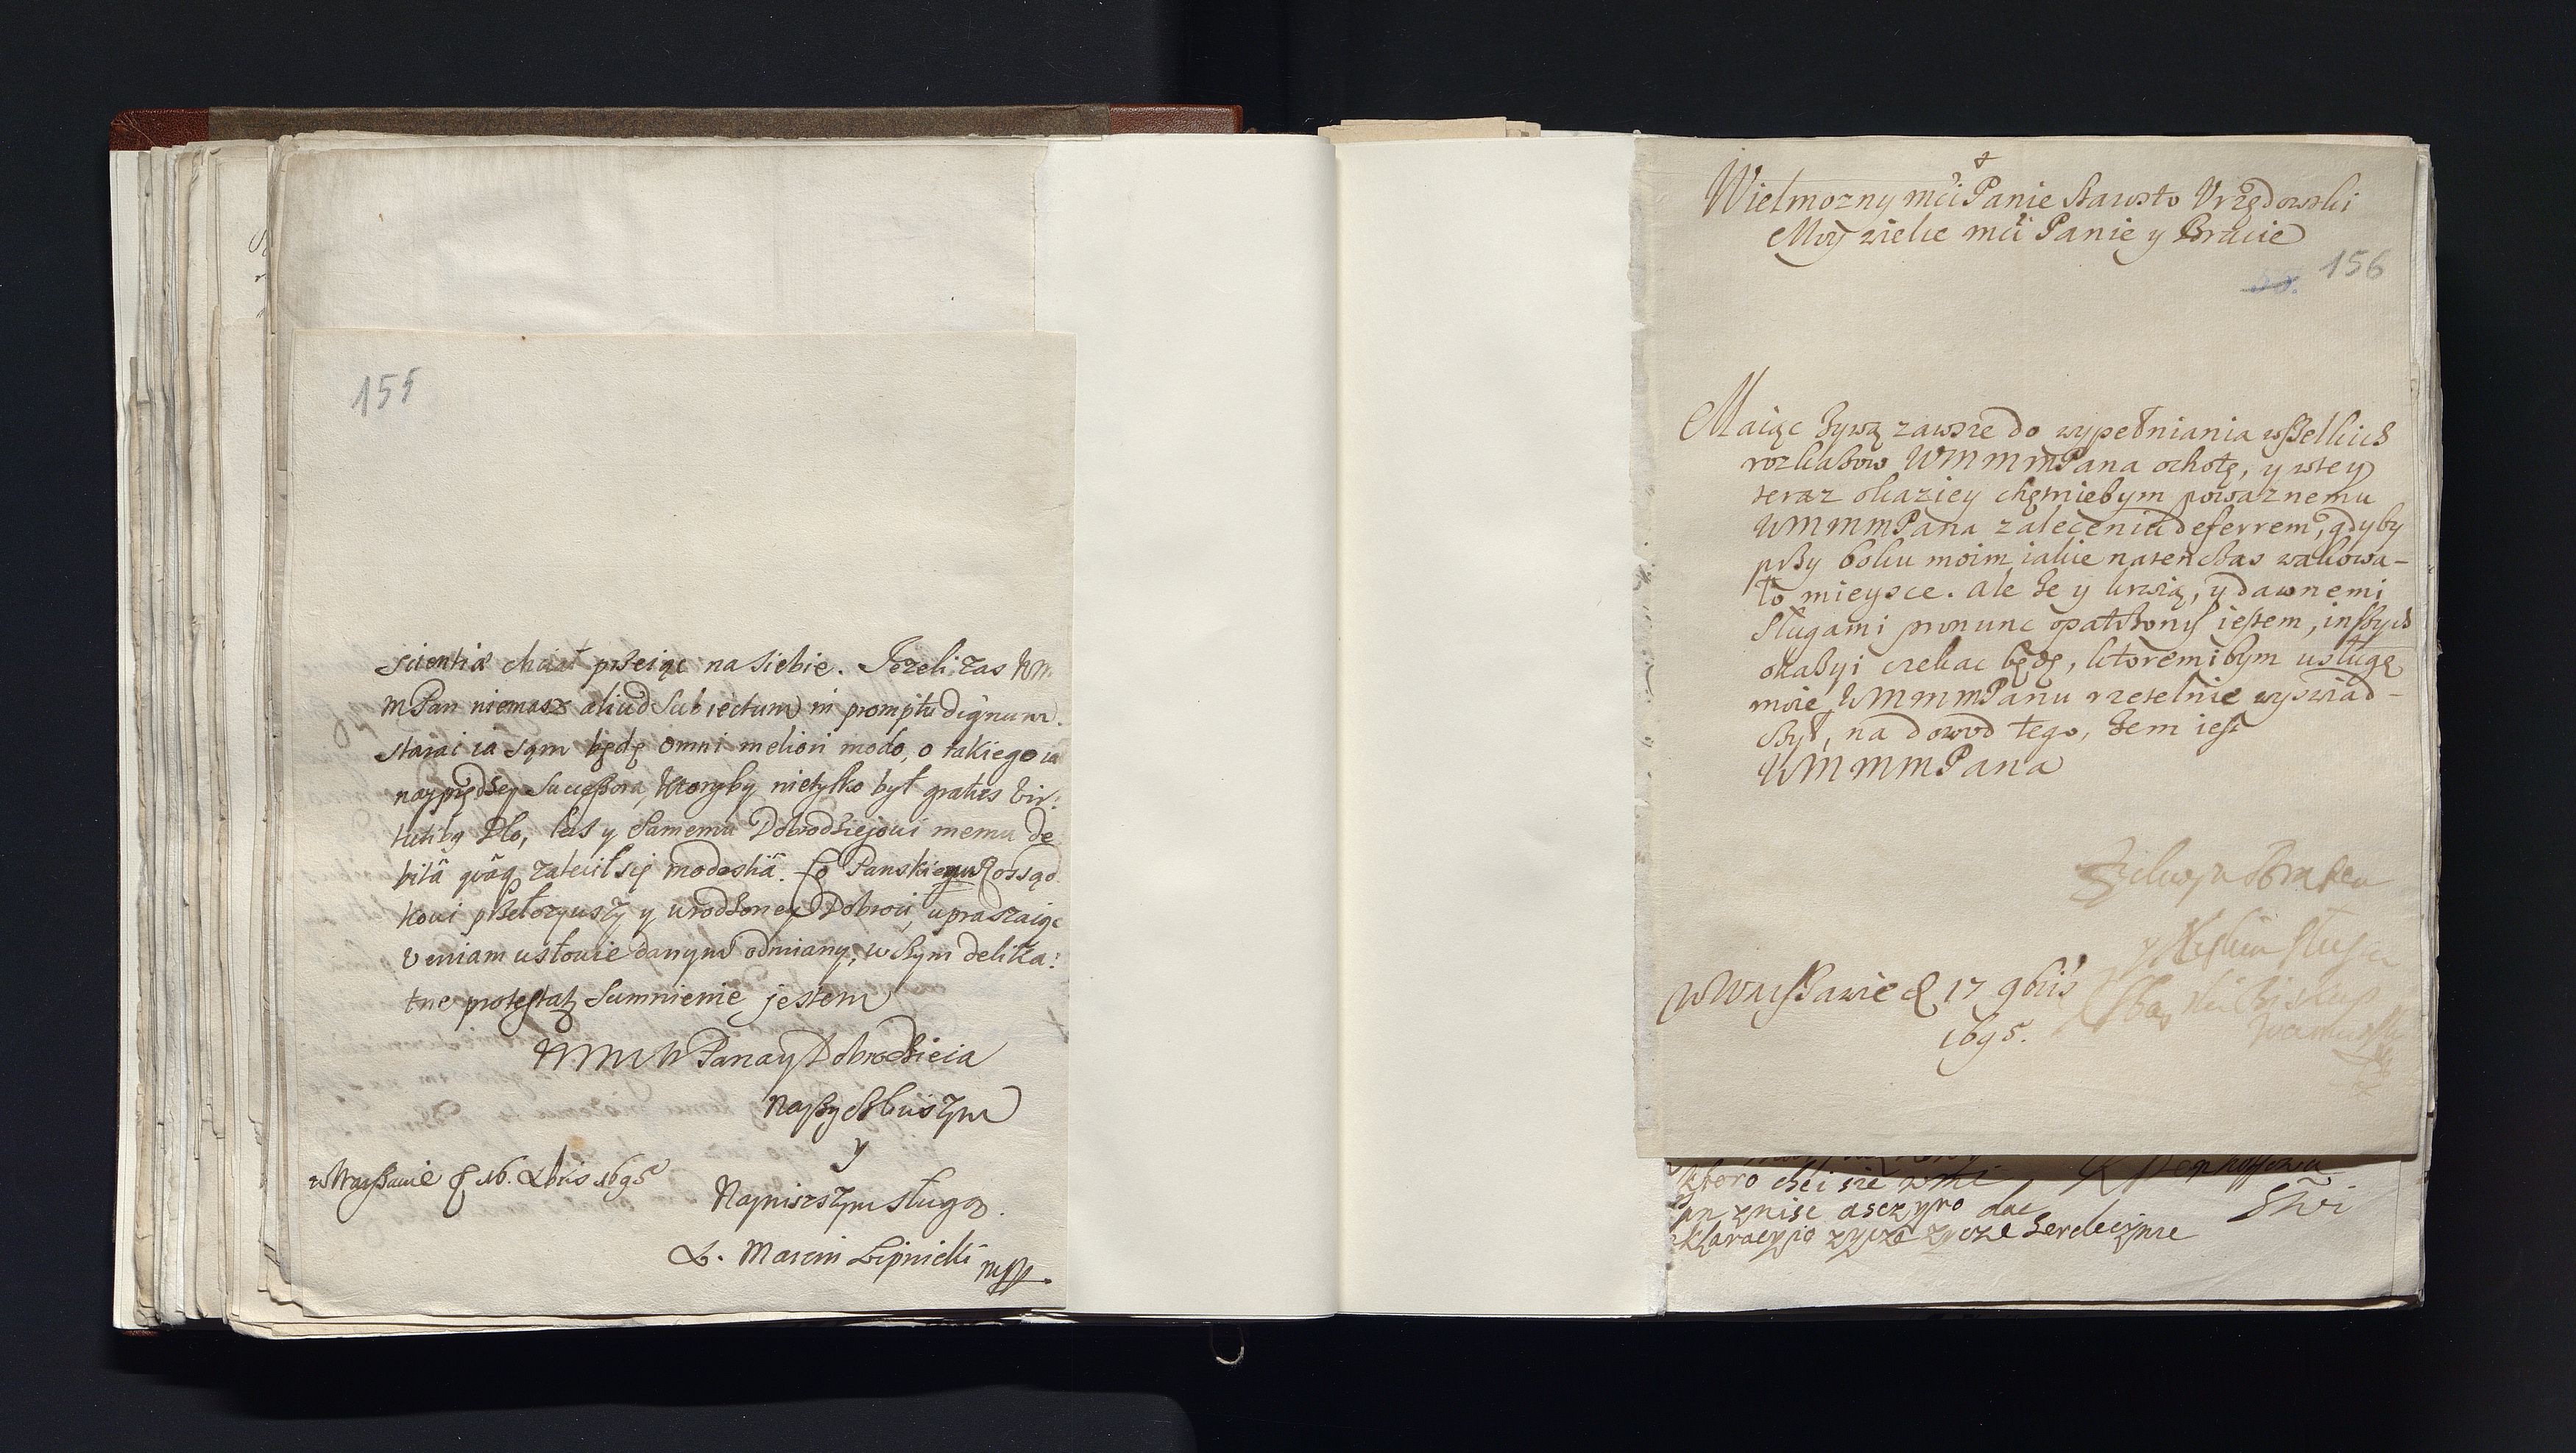 155
scientiã chciał prżeiąc na siebie. Jeżeli zas WM.
mPan niemasz aliud Subiectum in promptu dignum.
starai ia sąm będę omni meliori modo, o takiego ia
nayprędzey Sucessora, ktoryby nietylko był gratus Vir:
tutibq Dło, lecz y Samemu Dobrodźiejowi memu de
bitâ qvâq zalecił się modestiâ. Co Panskiemu Rossąd
kowi przełożywszy y wrodzoney Dobroci, upraszaiąc
Veniam usłowie danym odmiany, w czym delika:
tne protestatq Sumnienie jestem
WMM Pana y Dobrodźieia
Nayżyczliwszym
y
Nayniższym sługą.
w Warszawie d 16. Xbris 1695
X. Marcin Lipnicki mpp.
Wielmozny mći Panie Starosto Vrzędowski
Moy wielce mći Panie y Bracie
156
Maiąc żywą zawsze do wypełniania wszelkich
rozkazow WMMMPana ochotę, y wtey
teraz okaziey chętniebym powaznemu
WMMMPana zaleceniu deferrem, gdyby
przy boku moim iakie natenczas wakowa-
ło mieysce. ale że y krwią, y dawnemi
sługami pro nunc opatrzony iestem, inszych
okazyi czekac będę, ktoremibym usługę
moię WMMMPanu rzetelnie wyswiad-
czył, na dowod tego, żem iest
WMMMPana
Zyczliwym Bratem
y Sługa
w Warszawie d 17 9bris
1695.
Biskup
ktoro chci sie wmc
pn znisc asczyro dac
klaracyjo zycze Serdecznie